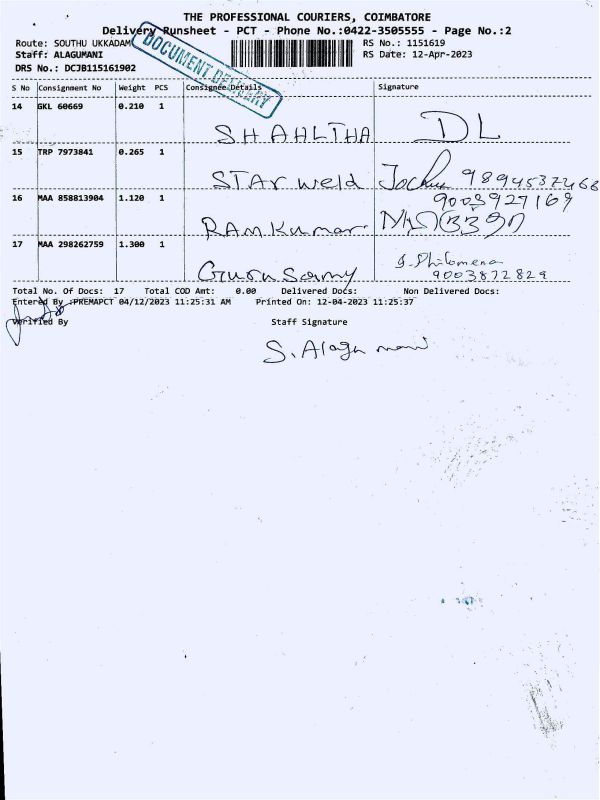 THE PROFESSIONAL COURIERS, COIMBATORE
Delivery Runsheet - PCT - Phone No.:0422-3505555 - Page No.:2
Route: SOUTHU UKKADAM
RS No.: 1151619
Staff: ALAGUMANI
RS Date: 12-Apr-2023
DRS No.: DCJB115161902
DOCUMENT DELIVERY
S No Consignment No Weight PCS Consignee Details Signature
14 GKL 60669 0.210 1
SHAHLTHA DL
15 TRP 7973841 0.265 1
STAR weld 9894537468
16 MAA 858813904 1.120 1
9003927169
RAMKumar.
17 MAA 298262759 1.300 1
J. Philomena
Guru Samy 9003872829
Total No. Of Docs: 17 Total COD Amt: 0.00 Delivered Docs: Non Delivered Docs:
Entered By :PREMAPCT 04/12/2023 11:25:31 AM Printed On: 12-04-2023 11:25:37
Verified By Staff Signature
S. Alagu mani